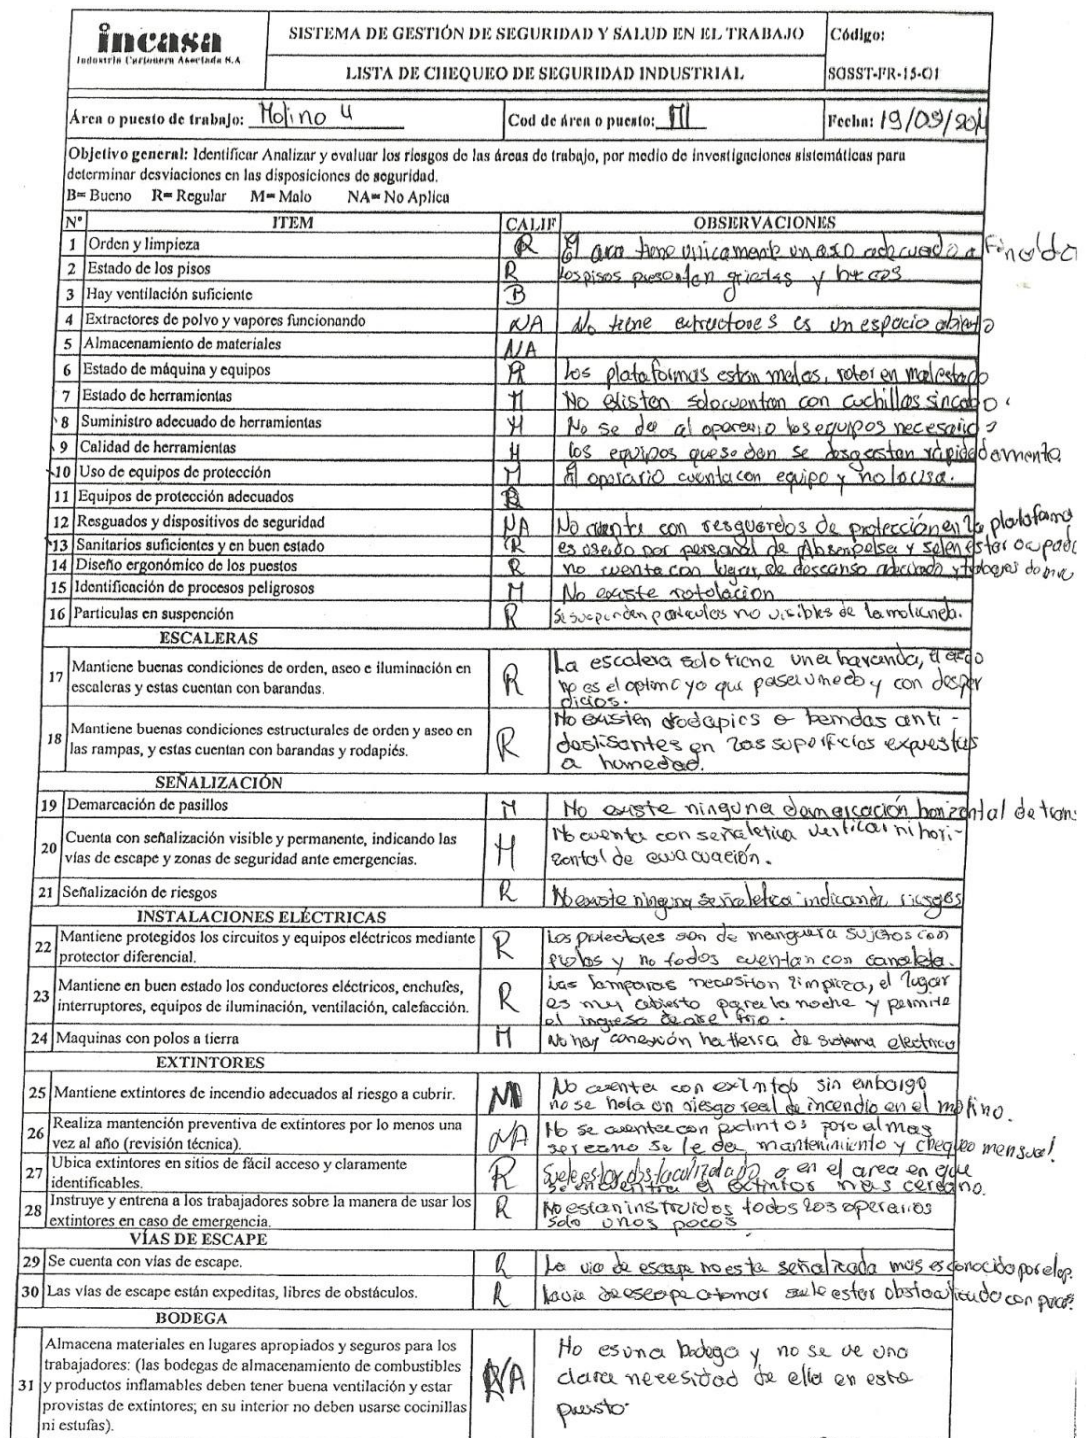 incasa
Industria Cartonera Asociada S.A
SISTEMA DE GESTIÓN DE SEGURIDAD Y SALUD EN EL TRABAJO
Código:
LISTA DE CHEQUEO DE SEGURIDAD INDUSTRIAL
SGSST-FR-15-01
Área o puesto de trabajo: Molino 4
Cod de área o puesto:
Fecha: 19/09/201
Objetivo general: Identificar Analizar y evaluar los riesgos de las áreas de trabajo, por medio de investigaciones sistemáticas para
determinar desviaciones en las disposiciones de seguridad.
B= Bueno R= Regular M= Malo NA= No Aplica
N° ITEM CALIF OBSERVACIONES
1 Orden y limpieza R El area tiene unicamente un aso adecuado a Final de
2 Estado de los pisos R Los pisos presentan grietas y
3 Hay ventilación suficiente B
4 Extractores de polvo y vapores funcionando NA No tiene extractores es un espacio abierto
5 Almacenamiento de materiales NA
6 Estado de máquina y equipos Las plataformas estan malas, rotor en mal estado
7 Estado de herramientas M No existen solo cuentan con cuchillas sin cabo
8 Suministro adecuado de herramientas M No se da al operario los equipos necesarios
9 Calidad de herramientas M los equipos que se dan se desgastan rápidadamente
10 Uso de equipos de protección M El operario cuenta con equipo y no lo usa.
11 Equipos de protección adecuados B
12 Resguados y dispositivos de seguridad NA No cuenta con resguardos de protección en la plataforma
13 Sanitarios suficientes y en buen estado R es usado por personal de Absorpelsa y selen estar ocupado
14 Diseño ergonómico de los puestos R no cuenta con lugar de descanso adecuado y
15 Identificación de procesos peligrosos M No existe rotolacion
16 Particulas en suspención R Se suspenden particulas no visibles de la
ESCALERAS
17 Mantiene buenas condiciones de orden, aseo e iluminación en
escaleras y estas cuentan con barandas.
R
La escalera solo tiene una baranda, el aseo
no es el optimo ya que pasa umedo y con desper
dicios.
18 Mantiene buenas condiciones estructurales de orden y aseo en
las rampas, y estas cuentan con barandas y rodapiés.
R
No existen rodapies o bandas anti-
deslisantes en las superficies expuestas
a humedad.
SEÑALIZACIÓN
19 Demarcación de pasillos M No existe ninguna demarcación horizontal de trans
20 Cuenta con señalización visible y permanente, indicando las
vías de escape y zonas de seguridad ante emergencias.
M
No cuenta con señaletica vertical ni hori-
zontal de evacuación.
21 Señalización de riesgos R No existe ninguna señaletica indicando riesgos
INSTALACIONES ELÉCTRICAS
22 Mantiene protegidos los circuitos y equipos eléctricos mediante
protector diferencial.
R
Los protectores son de manguera sujetos con
piolas y no todos cuentan con canaleta.
23 Mantiene en buen estado los conductores eléctricos, enchufes,
interruptores, equipos de iluminación, ventilación, calefacción.
R
Las lamparas necesitan limpieza, el lugar
es muy abierto para la noche y permite
el ingreso de aire frio.
24 Maquinas con polos a tierra M No hay conexión ha tierra de sistema electrico
EXTINTORES
25 Mantiene extintores de incendio adecuados al riesgo a cubrir.
No cuenta con extintob sin enbargo
no se nota un riesgo real de incendio en el molino.
26 Realiza mantención preventiva de extintores por lo menos una
vez al año (revisión técnica).
NA
No se cuenta con extintos pero al mas
sercano se le da mantenimiento y chequeo mensual
27 Ubica extintores en sitios de fácil acceso y claramente
identificables.
R
Suele estar obstaculizado o en el area en que
se encuentra el extintor mas cercano.
28 Instruye y entrena a los trabajadores sobre la manera de usar los
extintores en caso de emergencia.
R
No estan instruidos todos los operarios
Solo unos pocos
VÍAS DE ESCAPE
29 Se cuenta con vías de escape. R La via de escape no esta señalizada mas es conocida por el op.
30 Las vías de escape están expeditas, libres de obstáculos. R la via de escape a tomar suele estar obstaculizada con
BODEGA
31 Almacena materiales en lugares apropiados y seguros para los
trabajadores: (las bodegas de almacenamiento de combustibles
y productos inflamables deben tener buena ventilación y estar
provistas de extintores; en su interior no deben usarse cocinillas
ni estufas).
NA
No es una bodega y no se ve una
clara necesidad de ella en este
puesto.